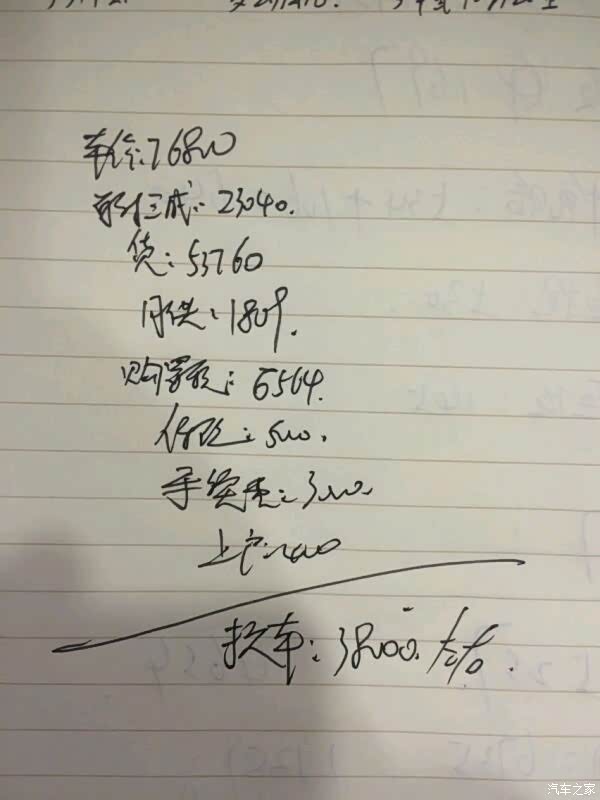 车价:76800
首付三成:23040.
贷:53760
月供:1809.
购置税:6564.
保险:5000.
手续费:3000.
上户:400
提车:38000.左右.
汽车之家